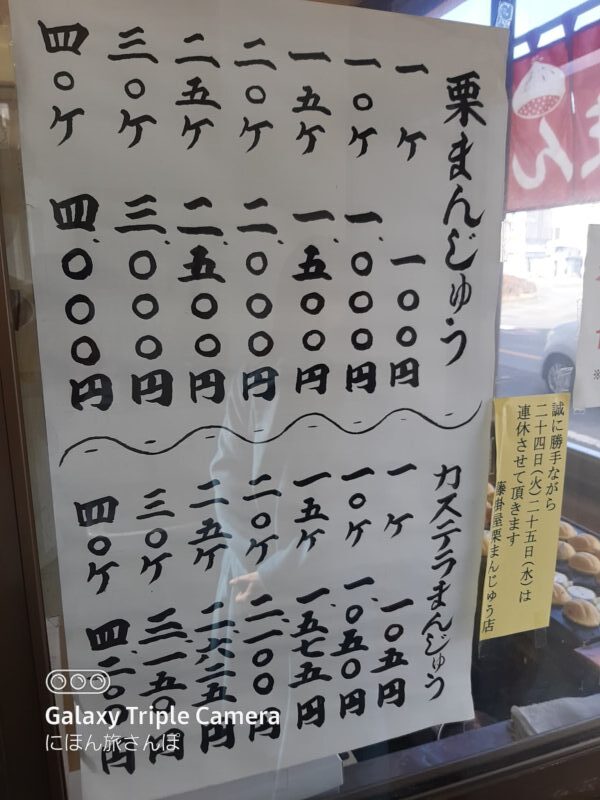 栗まんじゅう
一ケ 一〇〇円
一〇ケ 一、〇〇〇円
一五ケ 一、五〇〇円
二〇ケ 二、〇〇〇円
二五ケ 二、五〇〇円
三〇ケ 三、〇〇〇円
四〇ケ 四、〇〇〇円
カステラまんじゅう
一ケ 一〇五円
一〇ケ 一、〇五〇円
一五ケ 一、五七五円
二〇ケ 二、一〇〇円
二五ケ 二、六二五円
三〇ケ 三、一五〇円
四〇ケ 四、二〇〇円
誠に勝手ながら
二十四日(火)二十五日(水)は
連休させて頂きます
藤掛屋栗まんじゅう店
まん
Galaxy Triple Camera
にほん旅さんぽ